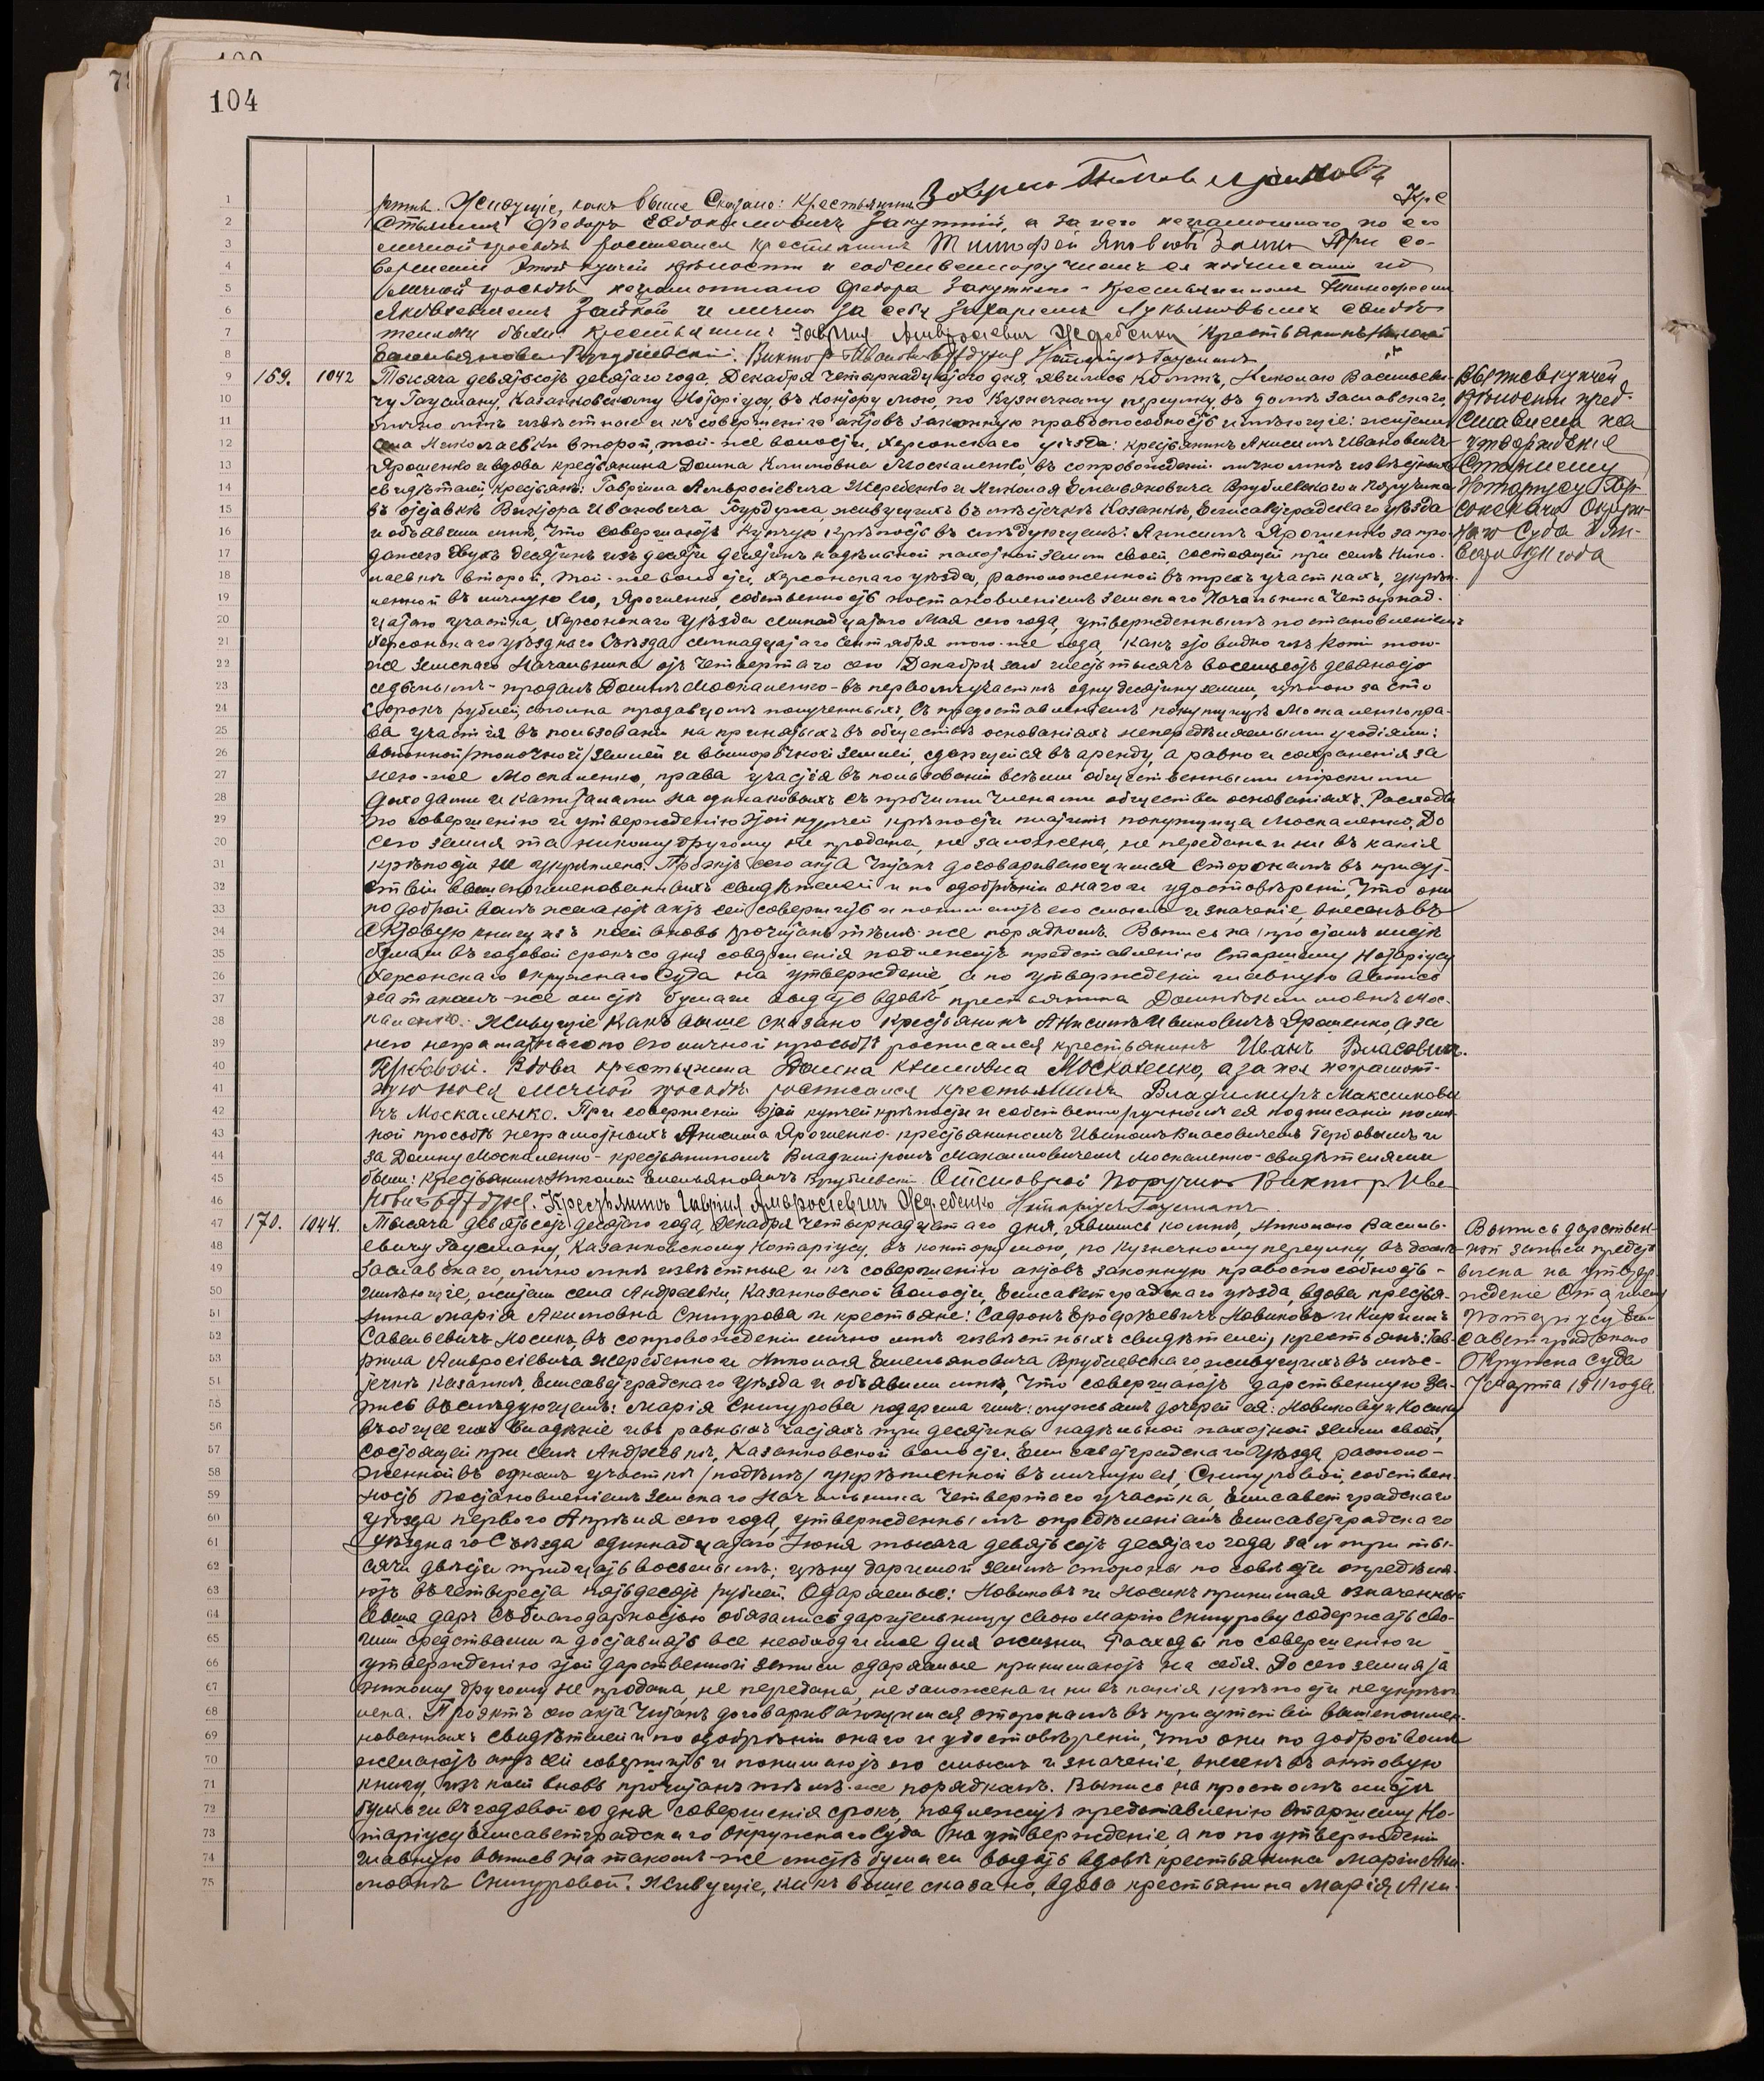 104
рять. Живущіе, какъ выше сказано: крестьянинъ Кре
стьянинъ Федоръ Евдокимовичъ Закутній, а за него неграмотнаго по его
личной просьбѣ росписался крестьянинъ Тимофей Яковлевъ При со-
вершеніи этой купчей крѣпости и собственноручномъ ея подписаніи по
личной просьбѣ неграмотнаго Федора Закутняго - крестьяниномъ Тимофеемъ
Яковлевичемъ и лично за себя Захаріемъ Лукьяновымъ свидѣ-
телями были: крестьянинъ Гавріилъ Амвросіевичъ Жеребенко Крестьянинъ Николай
Емельяновичъ Врублевскій. Викторъ Ивановъ Бурдунъ Нотаріусъ Гаусманъ
169. 1042 Тысяча девятьсотъ десятаго года, Декабря четырнадцатаго дня, явились ко мнѣ, Николаю Васильеви-
чу Гаусману, Казанковскому Нотаріусу, въ контору мою, по Кузнечному переулку, въ домѣ Заславскаго,
лично мнѣ извѣстные и къ совершенію актовъ законную правоспособность имѣющіе: жители
села Николаевки второй, той-же волости, Херсонскаго уѣзда: крестьянинъ Анисимъ Ивановичъ
Ярошенко и вдова крестьянина Домна Климовна Москаленко, въ сопровожденіи лично мнѣ извѣстныхъ
свидѣтелей, крестьянъ: Гавріила Амвросіевича Жеребенко и Николая Емельяновича Врублевскаго и Поручика
въ отставкѣ Виктора Ивановича Бурдуна, живущихъ въ мѣстечкѣ Казанкѣ, Елисаветградскаго уѣзда
и объявили мнѣ, что совершаютъ купчую крѣпость въ слѣдующемъ: Анисимъ Ярошенко за про-
дачею двухъ десятинъ изъ десяти десятинъ надѣльной пахотной земли своей, состоящей при селѣ Нико-
лаевкѣ второй, той-же волости, Херсонскаго уѣзда, расположенной въ трехъ участкахъ, укрѣп-
ленной въ личную его, Ярошенко, собственность постановленіемъ Земскаго Начальника четырнад-
цатаго участка, Херсонскаго уѣзда семнадцатаго Мая сего года, утвержденнымъ постановленіемъ
Херсонскаго уѣзднаго Съѣзда семнадцатаго Сентября того-же года, какъ это видно изъ копіи того-
же Земскаго Начальника отъ четвертаго сего Декабря за № шесть тысячъ восемьсотъ девяносто
седьмымъ - продалъ Домнѣ Москаленко - въ первомъ участкѣ одну десятину земли, цѣною за сто
сорокъ рублей, сполна продавцомъ полученныхъ, съ предоставленіемъ покупщицѣ Москаленко пра-
ва участія въ пользованіи на принятыхъ въ обществѣ основаніяхъ непередѣляемыми угодіями:
выгонной/толочной/землей и вымороч­ной землей, сдающейся въ аренду, а равно и сохраненія за
нею-же Москаленко, права участія въ пользованіи всѣми общественными мірскими
доходами и капиталами на одинаковыхъ съ прочими членами общества основаніяхъ. Расходы
по совершенію и утвержденію этой купчей крѣпости платитъ покупщица Москаленко. До
сего земля та никому другому не продана, не заложена, не передана и ни въ какія
крѣпости не укрѣплена. Проэктъ сего акта читанъ договаривающимся сторонамъ въ присут-
ствіи вышепоименованныхъ свидѣтелей и по одобреніи онаго и удостовѣреніи, что они
по доброй волѣ желаютъ актъ сей совершить и понимаютъ его смыслъ и значеніе, внесенъ въ
актовую книгу, изъ коей вновь прочитанъ тѣмъ-же порядкомъ. Выпись на простомъ листѣ
бумаги въ годовой срокъ со дня совершенія подлежитъ представленію Старшему Нотаріусу
Херсонскаго Окружнаго Суда на утвержденіе, а по утвержденіи главную выпись
на такомъ-же листѣ бумаги выдать вдовѣ крестьянина Домнѣ Климовнѣ Мос-
каленко. Живущіе какъ выше сказано крестьянинъ Анисимъ Ивановичъ Ярошенко, а за
него неграмотнаго по его личной просьбѣ росписался крестьянинъ Иванъ Власовичъ
Гербовой. Вдова крестьянина Домна Климовна Москаленко, а за нея неграмот-
ную по ея личной просьбѣ росписался крестьянинъ Владимиръ Максимови
чъ Москаленко. При совершеніи этой купчей крѣпости и собственноручномъ ея подписаніи по лич-
ной просьбѣ неграмотныхъ Анисима Ярошенко - крестьяниномъ Иваномъ Власовичемъ Гербовымъ и
за Домну Москаленко - крестьяниномъ Владиміромъ Максимовичемъ Москаленко - свидѣтелями
были: крестьянинъ Николай Емельяновичъ Врублевскій. Отставной Поручикъ Викторъ Ива
новичъ Бурдунъ. Крестьянинъ Гавріилъ Амвросіевичъ Жеребенко Нотаріусъ Гаусманъ.
Выпись купчей
крѣпости пред-
ставлена на
утвержденіе
Старшему
Нотаріусу Хер-
сонскаго Окруж-
наго Суда Ян-
варя 1911 года
170. 1044. Тысяча девятьсотъ десятаго года, Декабря четырнадцатаго дня, явились ко мнѣ, Николаю Василь-
евичу Гаусману, Казанковскому Нотаріусу, въ контору мою, по Кузнечному переулку, въ домѣ
Заславскаго, лично мнѣ извѣстные и къ совершенію актовъ законную правоспособность -
имѣющіе, жители села Андреевки, Казанковской волости, Елисаветградскаго уѣзда, вдова крестья-
нина Марія Акимовна Снигурова и крестьяне: Сафронъ Ерофѣевичъ Новиковъ и Кириллъ
Савельевичъ Носикъ, въ сопровожденіи лично мнѣ извѣстныхъ свидѣтелей, крестьянъ: Гав-
ріила Амвросіевича Жеребенко и Николая Емельяновича Врублевскаго, живущихъ въ мѣс-
течкѣ Казанкѣ, Елисаветградскаго уѣзда и объявили мнѣ, что совершаютъ дарственную за-
пись въ слѣдующемъ: Марія Снигурова подарила имъ: мужьямъ дочерей ея: Новикову и Носику
въ общее ихъ владѣніе и въ равныхъ частяхъ три десятины надѣльной пахотной земли своей,
состоящей при селѣ Андреевкѣ, Казанковской волости, Елисаветградскаго уѣзда, располо-
женной въ одномъ участкѣ /подѣлѣ/ укрѣпленной въ личную ея, Снигуровой, собствен-
ность постановленіемъ Земскаго Начальника четвертаго участка, Елисаветградскаго
уѣзда перваго Апрѣля сего года, утвержденнымъ опредѣленіемъ Елисаветградскаго
уѣзднаго Съѣзда одиннадцатаго Іюня тысяча девятьсотъ десятаго года за № три ты-
сячи двѣсти тридцать восьмымъ; цѣну даримой землѣ стороны по совѣсти опредѣля-
ютъ въ четыреста пятьдесятъ рублей. Одаряемые: Новиковъ и Носикъ принимая означенный
выше даръ съ благодарностью обязались дарительницу свою Марію Снигурову содержать сво-
ими средствами и доставлять все необходимое для жизни. Расходы по совершенію и
утвержденію этой дарственной записи одаряемые принимаютъ на себя. До сего земля та
никому другому не продана, не передана, не заложена и ни въ какія крѣпости не укрѣп-
лена. Проэктъ сего акта читанъ договаривающимся сторонамъ въ присутствіи вышепоиме-
нованныхъ свидѣтелей и по одобреніи онаго и удостовѣреніи, что они по доброй волѣ
желаютъ актъ сей совершить и понимаютъ его смыслъ и значеніе, внесенъ въ актовую
книгу, изъ коей вновь прочитанъ тѣмъ-же порядкомъ. Выпись на простомъ листѣ
бумаги въ годовой со дня совершенія срокъ, подлежитъ представленію Старшему Но-
таріусу Елисаветградскаго Окружнаго Суда на утвержденіе, а по по утвержденіи
главную выпись на такомъ-же листѣ бумаги выдать вдовѣ крестьянина Маріи Аки-
мовнѣ Снигуровой. Живущіе, какъ выше сказано, вдова крестьянина Марія Аки-
Выпись дарствен-
ной записи предста
влена на утвер-
жденіе Старшему
Нотаріусу Ели
саветградскаго
Окружна Суда
7 Марта 1911 года.